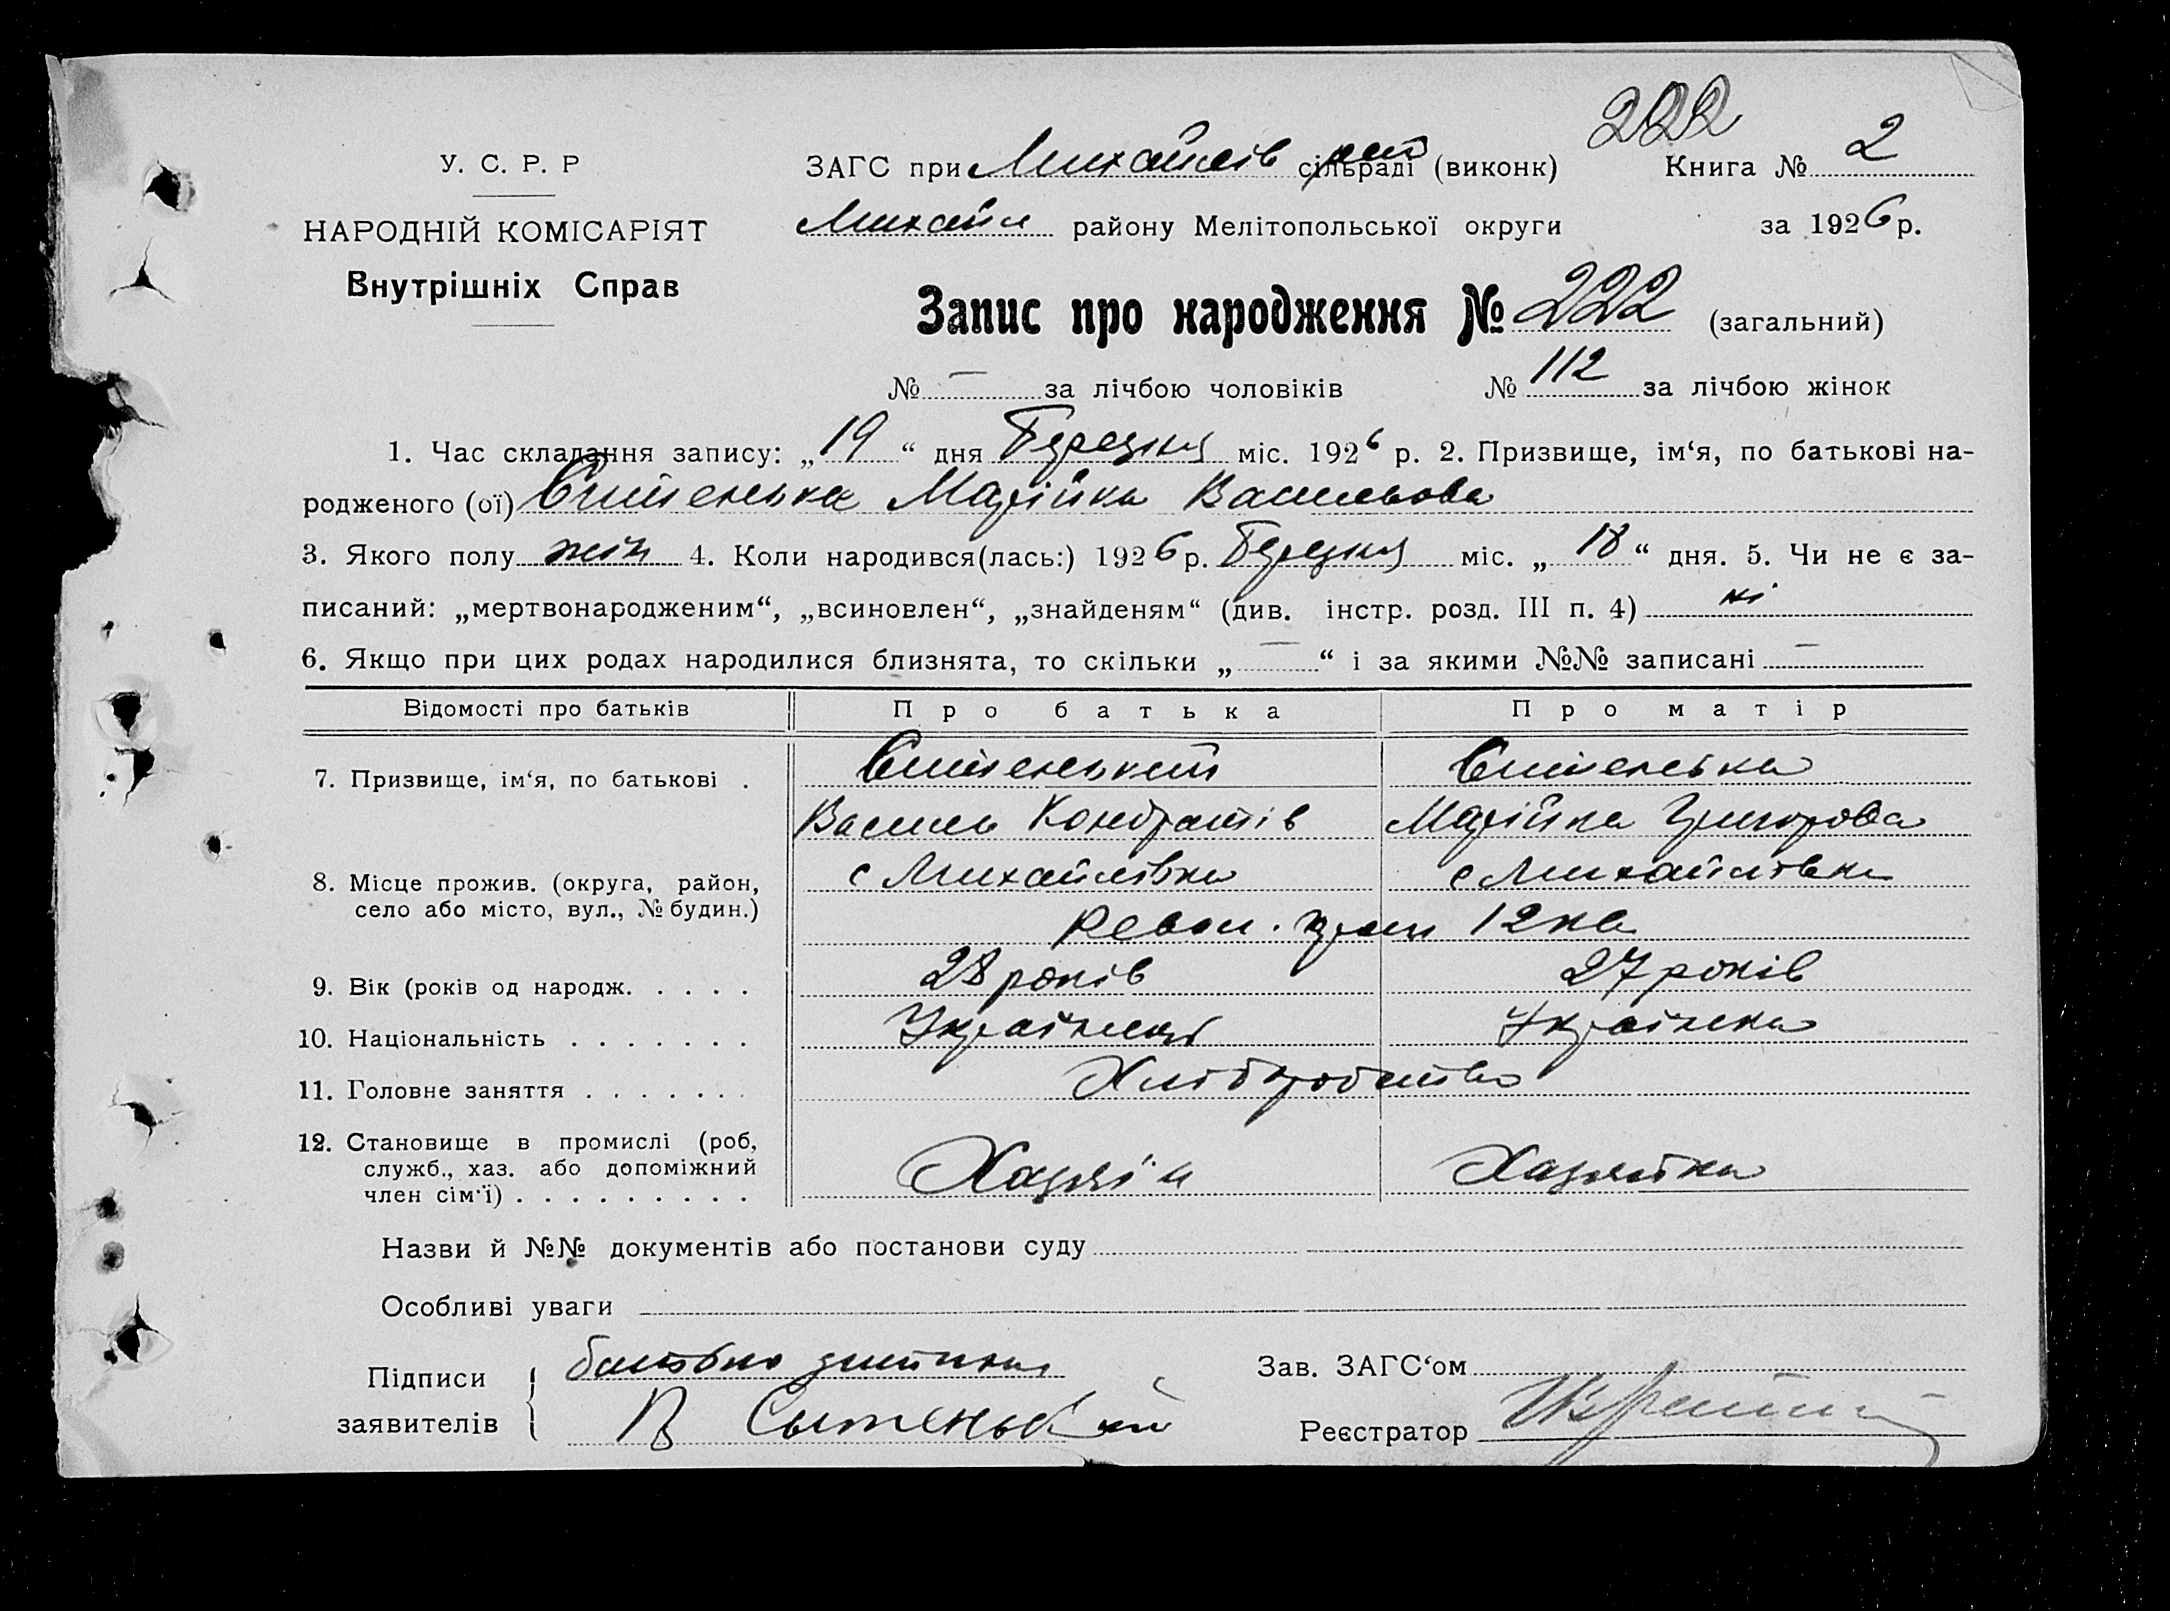 222
У. С. Р. Р
ЗАГС при Михайлів сільраді рай (виконк) Книга № 2
НАРОДНІЙ КОМІСАРІЯТ
Михайл району Мелітопольської округи за 1926 р.
Внутрішніх Справ
Запис про народження № 222 (загальний)
№ — за лічбою чоловіків № 112 за лічбою жінок
1. Час складання запису: „ 19 “ дня Березня міс. 1926 р. 2. Призвище, ім‘я, по батькові на-
родженого (ої) Ситенська Марійка Васильова
3. Якого полу жін 4. Коли народився(лась:) 1926 р. Березня міс. „ 18 “ дня. 5. Чи не є за-
писаний: „мертвонародженим“, „всиновлен“, „знайденям“ (див. інстр. розд. III п. 4) ні
6. Якщо при цих родах народилися близнята, то скільки „ — “ і за якими №№ записані —
Відомості про батьків Про батька Про матір
7. Призвище, ім‘я, по батькові . Ситенський Ситенська
Василь Кондратів Марійка Григорова
8. Місце прожив. (округа, район, с Михайлівка с Михайлівка
село або місто, вул., № будин.)
Револ. 12 кв
9. Вік (років од народж. . . . . 28 років 27 років
10. Національність . . . . . . . Українець Українка
11. Головне заняття . . . . . . . Хліборобство
12. Становище в промислі (роб,
служб., хаз. або допоміжний Хазяїн Хазяйка
член сім‘ї) . . . . . . . . .
Назви й №№ документів або постанови суду
Особливі уваги
Підписи батько дитини Зав. ЗАГС‘ом
заявителів В Сытенький Реєстратор